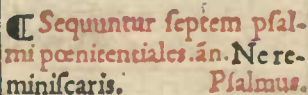 ¶ Sequuntur ſeptem pſal-
mi pœnitentiales. ān. Ne re-
miniſcaris. Pſalmus.